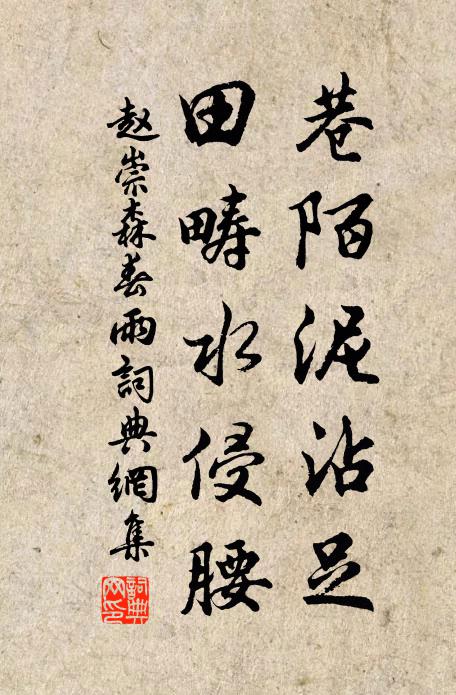 巷陌泥沾足
田畴水侵腰
赵崇森春雨詞典網集
詞典